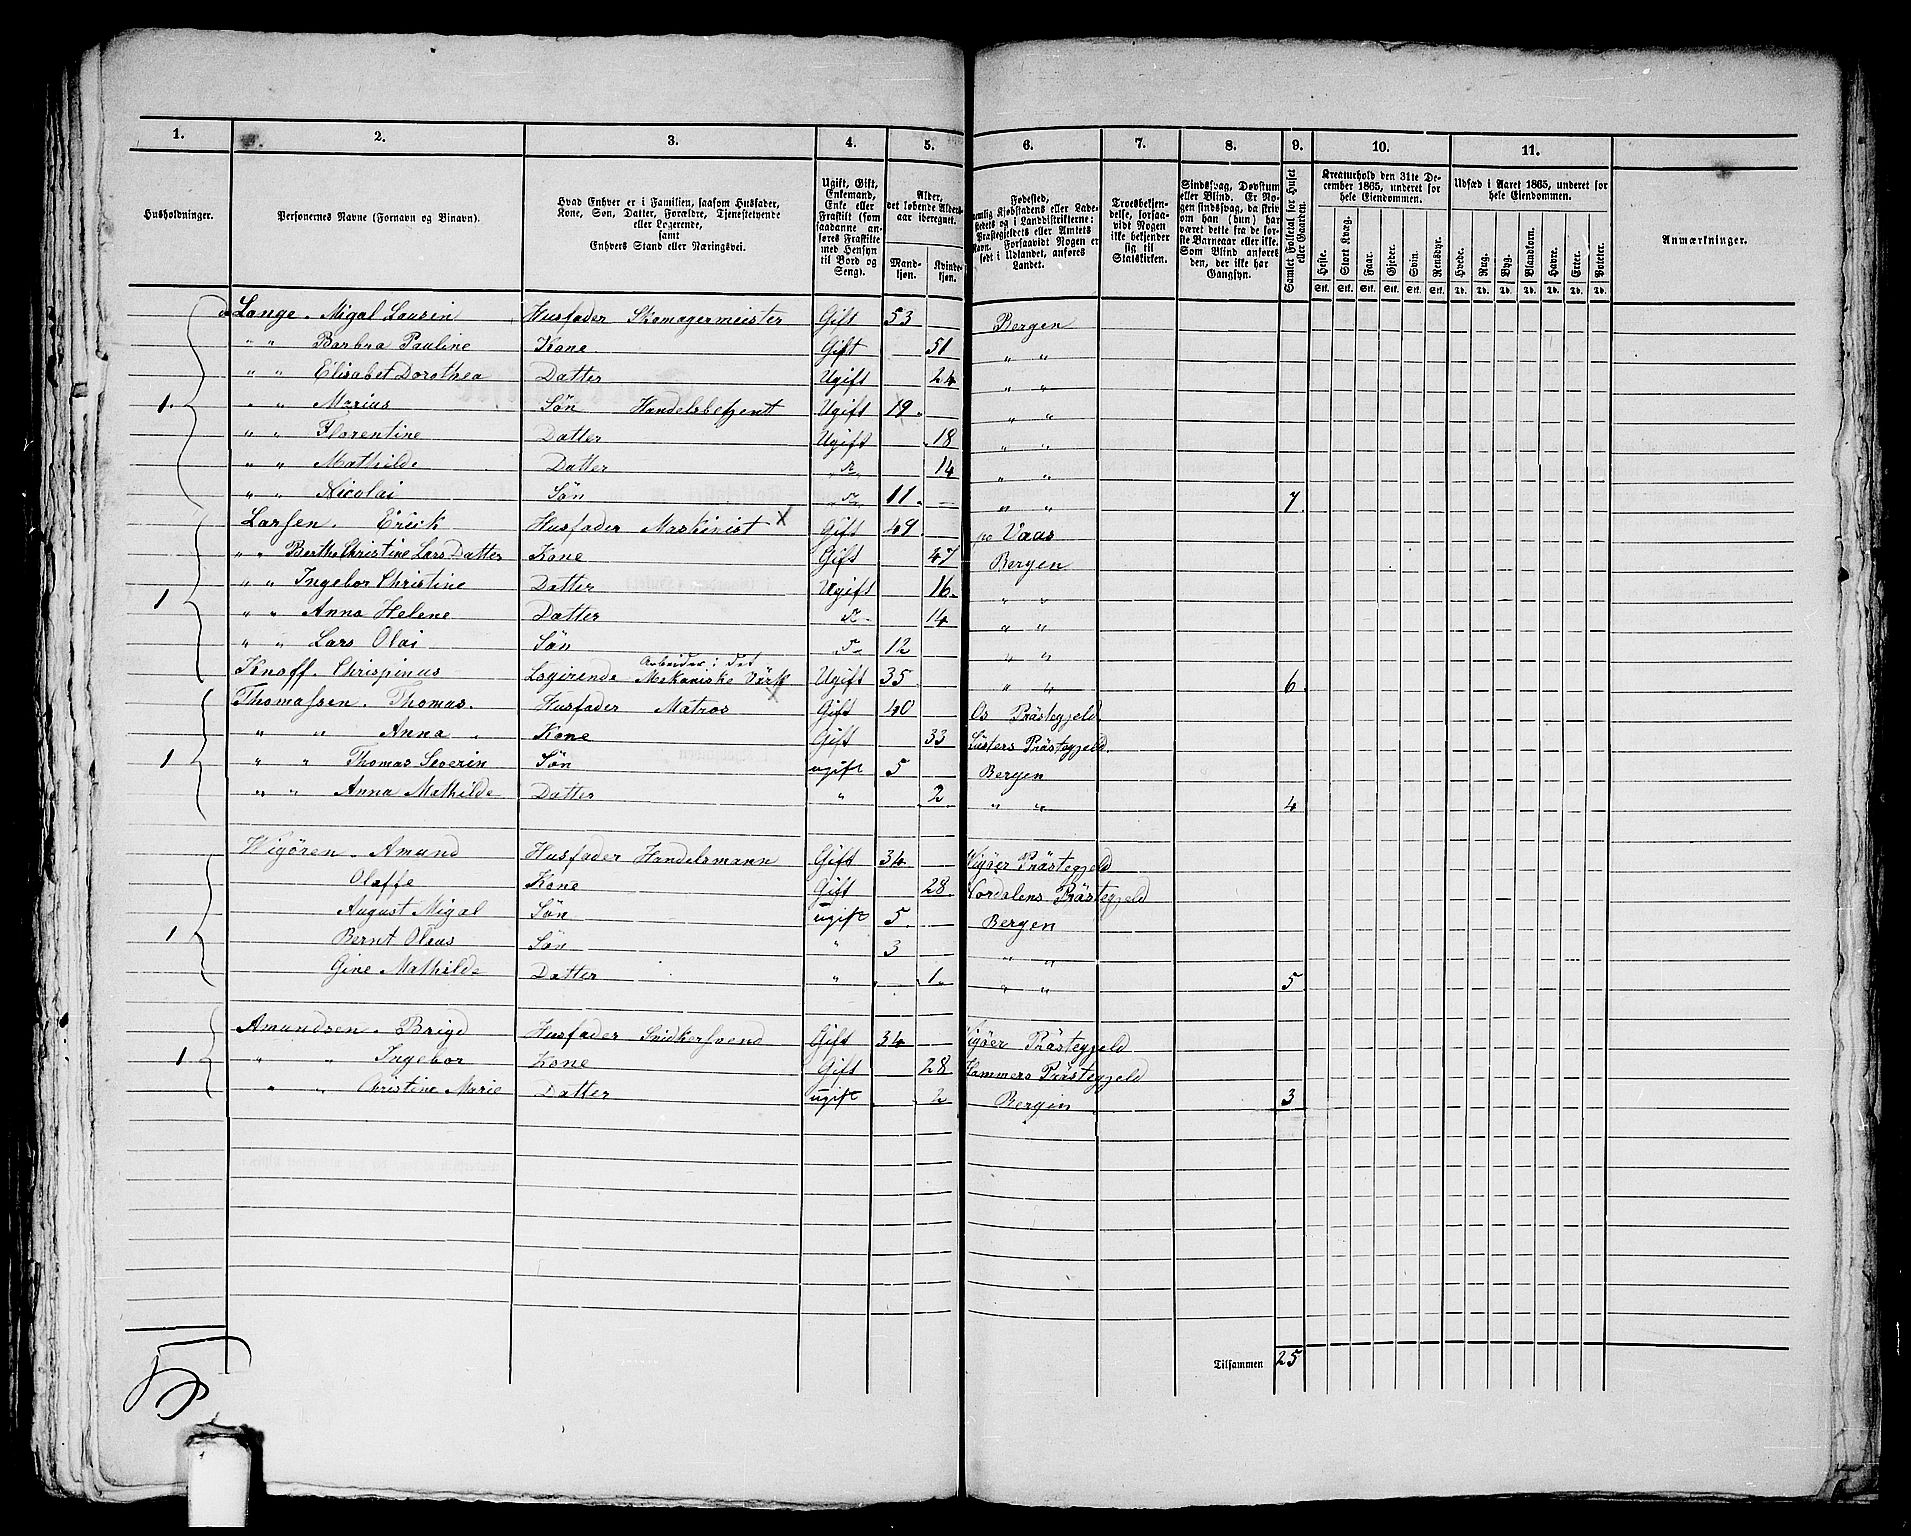 1. 2. 3. 4. 5. 6. 7. 8. 9. 10. 11.
Husholdninger.
Personernes Navne (Fornavn og Binavn).
Hvad Enhver er i Familien, saasom Husfader,
Kone, Søn, Datter, Forældre, Tjenestetyende
eller Logerende,
samt
Enhvers Stand eller Næringsvei.
Ugift, Gift,
Enkemand,
Enke eller
Fraskilt (som
saadanne an-
føres Fraskilte
med Hensyn
til Bord og
Seng).
Alder,
det løbende Alders-
aar iberegnet.
Mand-
kjøn.
Kvinde-
kjøn.
Fødested,
nemlig Kjøbstadens eller Lade-
stedets og i Landdistrikterne:
Præstegjeldets eller Amtets
Navn. Forsaavidt Nogen er
født i Udlandet, anføres
Landet.
Troesbekjen-
delse, forsaa-
vidt Nogen
ikke bekjender
sig til
Statskirken.
Sindssvag, Døvstum
eller Blind. Er No-
gen sindssvag, da skriv
om han (hun) har
været dette fra de før-
ste Barneaar eller ikke.
Som Blind anføres
den, der ikke har
Gangsyn.
Samlet Folketal for Huset
eller Gaarden.
Kreaturhold den 31te De-
cember 1865, underet for
hele Eiendommen.
Heste. Stort Kvæg. Faar. Gjeder. Svin. Rensdyr.
Stk. Stk. Stk. Stk. Stk. Stk.
Udsæd i Aaret 1865, underet for
hele Eiendommen.
Hvede. Rug. Byg. Blandkorn. Havre. Erter. Poteter.
Td. Td. Td. Td. Td. Td. Td.
Anmærkninger.
Lange. Migal Lausin Husfader Skomagermeister Gift 53 Bergen
" " Barbra Pauline Kone Gift 51 " "
" " Elisabet Dorothea Datter Ugift 24 " "
1. " " Marius Søn Handelsbetjent Ugift 19. " "
" " Florentine Datter Ugift 18 " "
" " Mathilde Datter 14 " "
" " Nicolai Søn 11 " " 7
Larsen. Erick Husfader Maskinist x Gift 49. Vaas
" " Berthe Christine Lars Datter Kone Gift 47 Bergen
1 " " Ingebor Christine Datter Ugift 16. " "
" " Anna Helene Datter 14 " "
" " Lars Olai Søn 12 " "
Knoff. Chrispinus Logirende Arbeider i det Mekaniske Värk x Ugift 35 " " 6
Thomassen. Thomas. Husfader Matros Gift 40 Os Prästegjeld
" " Anna " Kone Gift 33 Lüsters Prästegjeld.
1 " " Thomas Severin Søn ugift 5 Bergen
" " Anna Mathilde Datter " 2 " " 4
Wigören. Amund Husfader Handelsmann Gift 34 Wigöer Prästegjeld
Olaffe Kone Gift 28. Nordalens Prästegjeld
August Migal Søn ugift 5. Bergen
1 Bernt Olaus Søn " 3 " "
Gine Mathilde Datter " 1. " " 5
Amundsen. Brigd Husfader Snidkersvend Gift 34 Wigöer Prästegjeld
1 " " Ingebor Kone Gift 28 Hammers Prästegjeld
" " Christine Marie Datter ugift 2 Bergen 3
Tilsammen 25
5